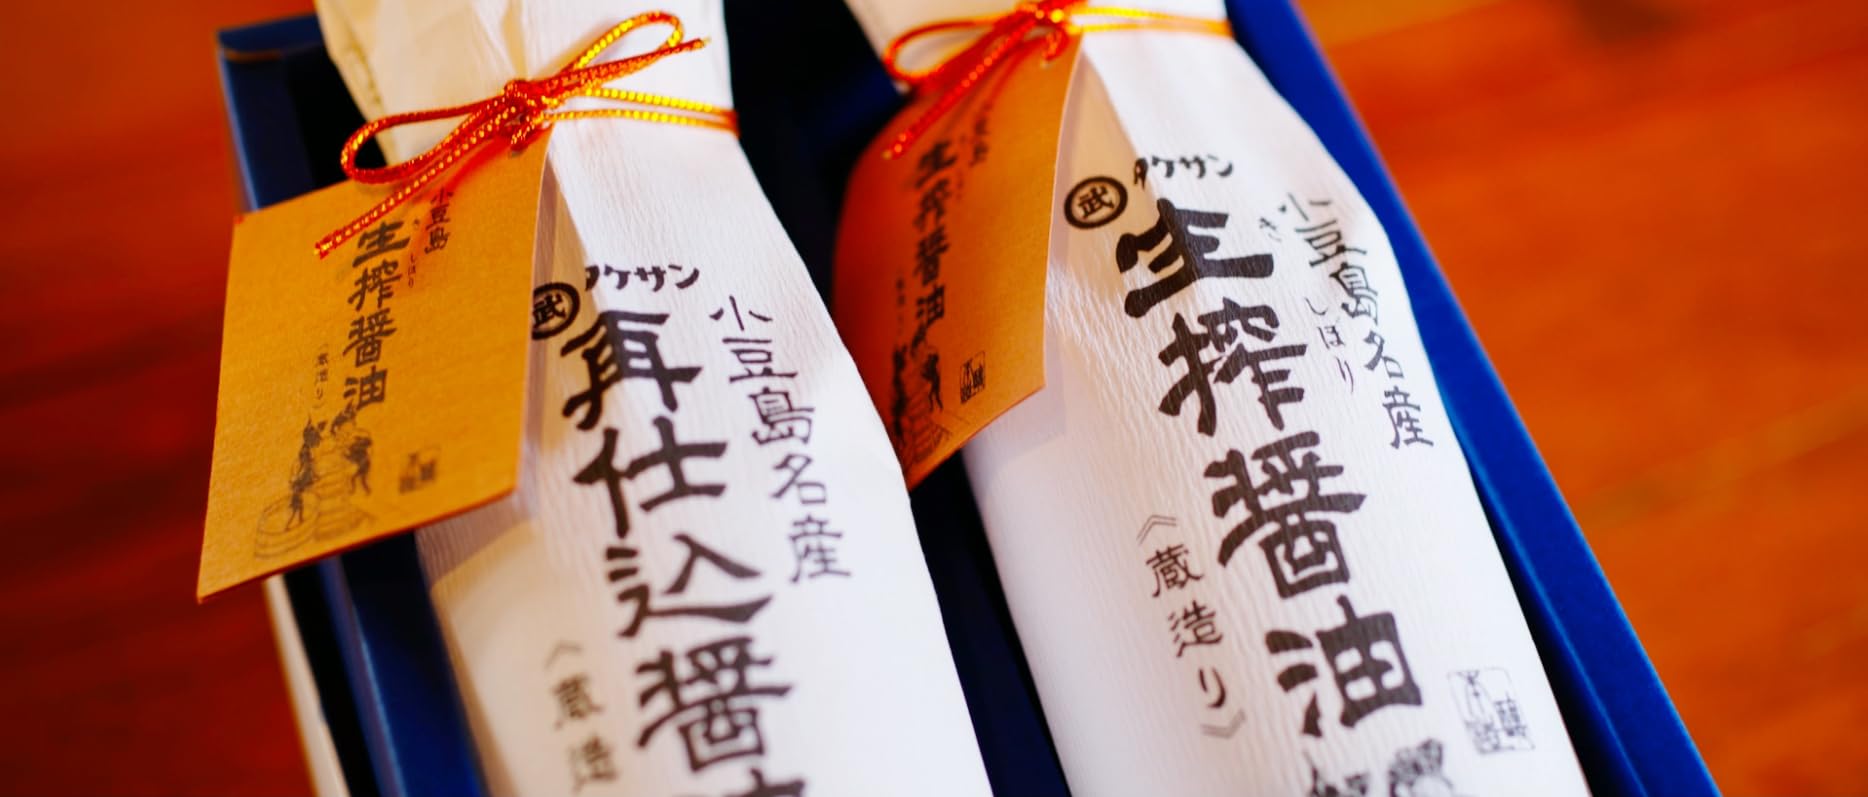 小豆島
生搾醤油
きしぼり
〈蔵造り〉
タケサン
武
小豆島名産
再仕込醤油
〈蔵造
生搾醤油
タケサン
武
小豆島名産
き しぼり
生搾醤油
《蔵造り》